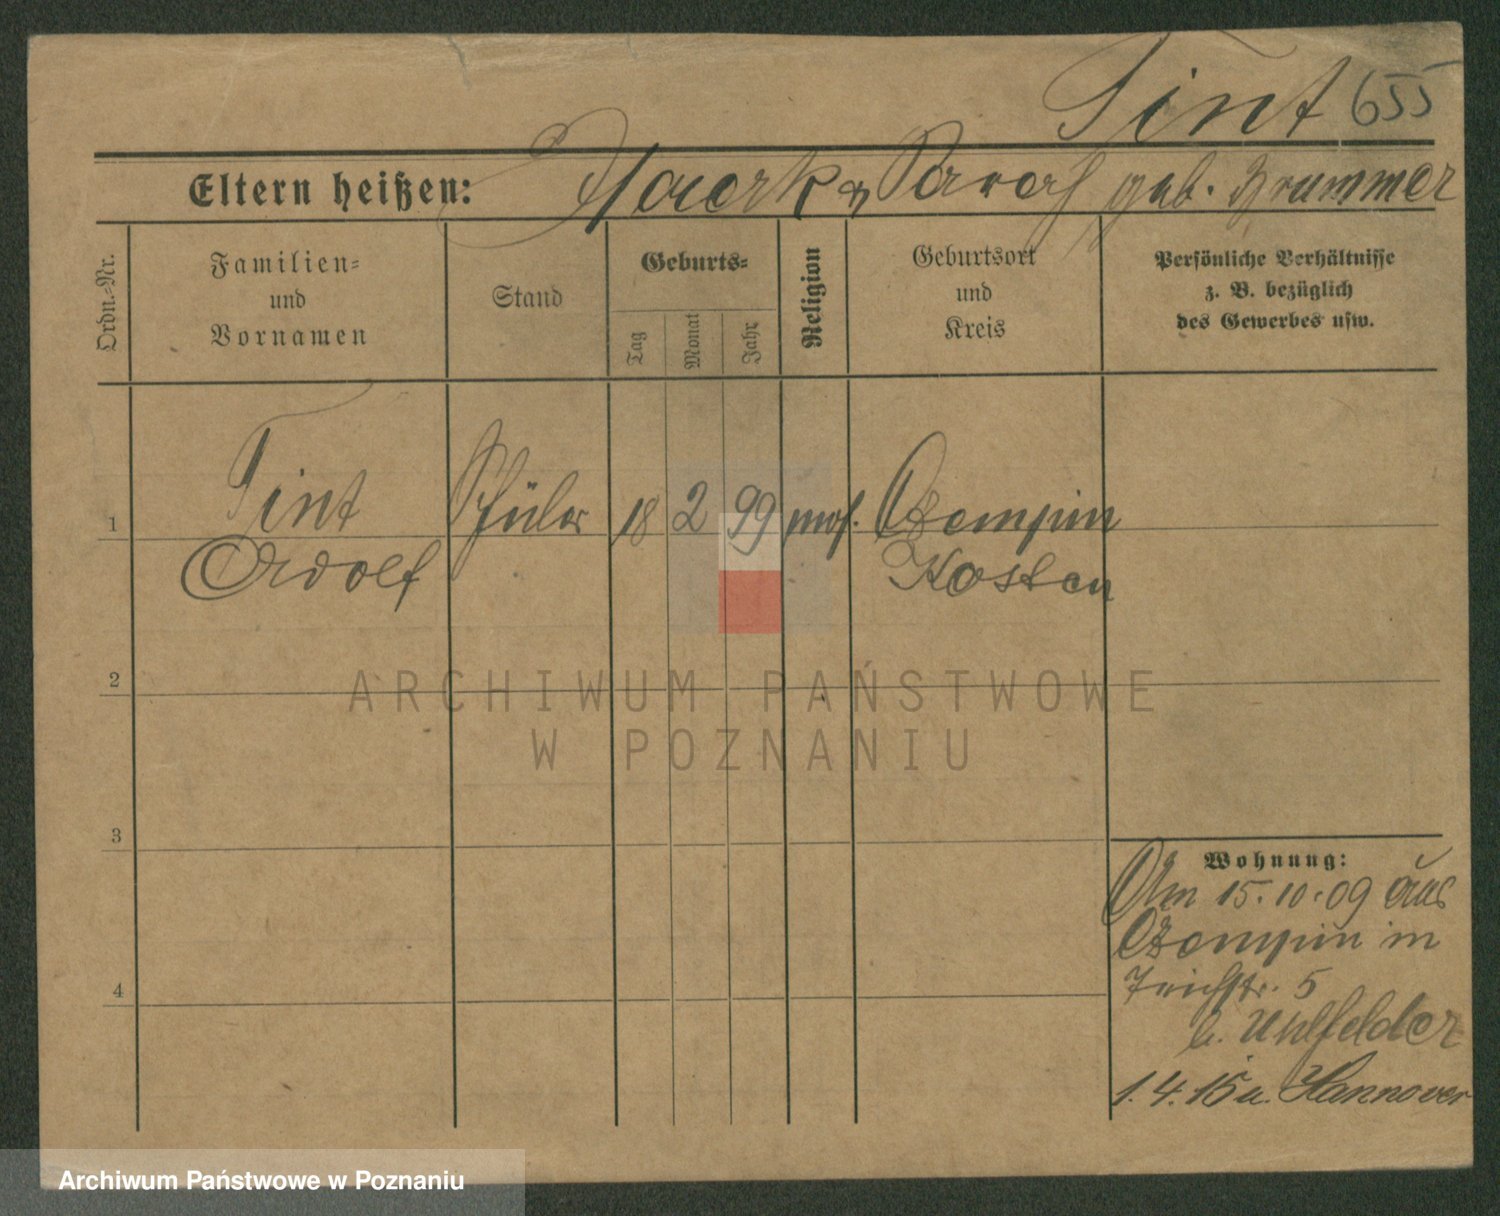 Tint 655
Eltern heißen: Mark & Sarah geb. Brummer
Ordn.-Nr.
Familien=
und
Vornamen
Stand
Geburts=
Tag
Monat
Jahr
Religion
Geburtsort
und
Kreis
Persönliche Verhältnisse
z. B. bezüglich
des Gewerbes usw.
1
Tint
Adolf
Schüler
18
2
99
mos.
Czempin
Kosten
2
3
4
Wohnung:
Am 15.10.09 aus
Czempin in
5
b. Uhlfelder
1.4.15 n. Hannover
ARCHIWUM PAŃSTWOWE
W POZNANIU
Archiwum Państwowe w Poznaniu